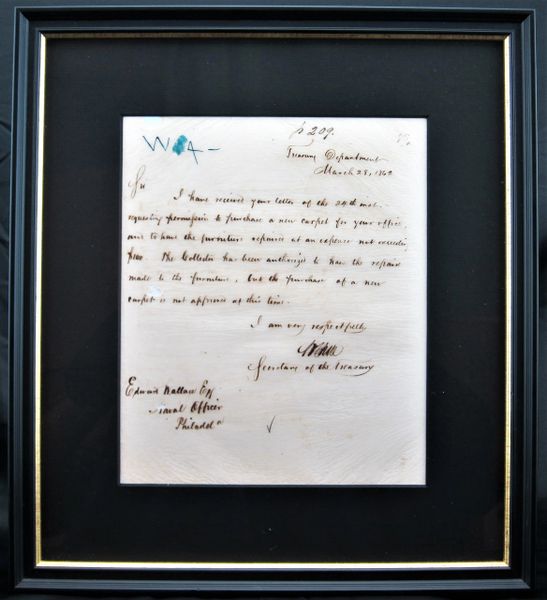 p 209.
W A -
Treasury Department
March 28, 1862
Sir
I have received your letter of the 24th inst.
requesting permission to purchase a new carpet for your office,
and to have the furniture repaired at an expense not exceeding
The Collector has been authorized to have the repairs
made to the furniture, but the purchase of a new
carpet is not approved at this time.
I am very respectfully
Secretary of the Treasury
Edward Wallace Esq
Naval Officer
Philadela